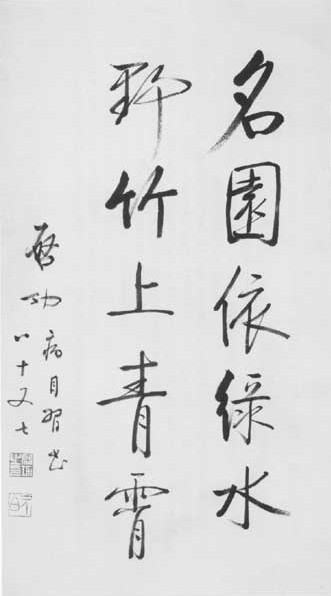 名園依綠水
野竹上青霄
啓功病目習書
八十又七